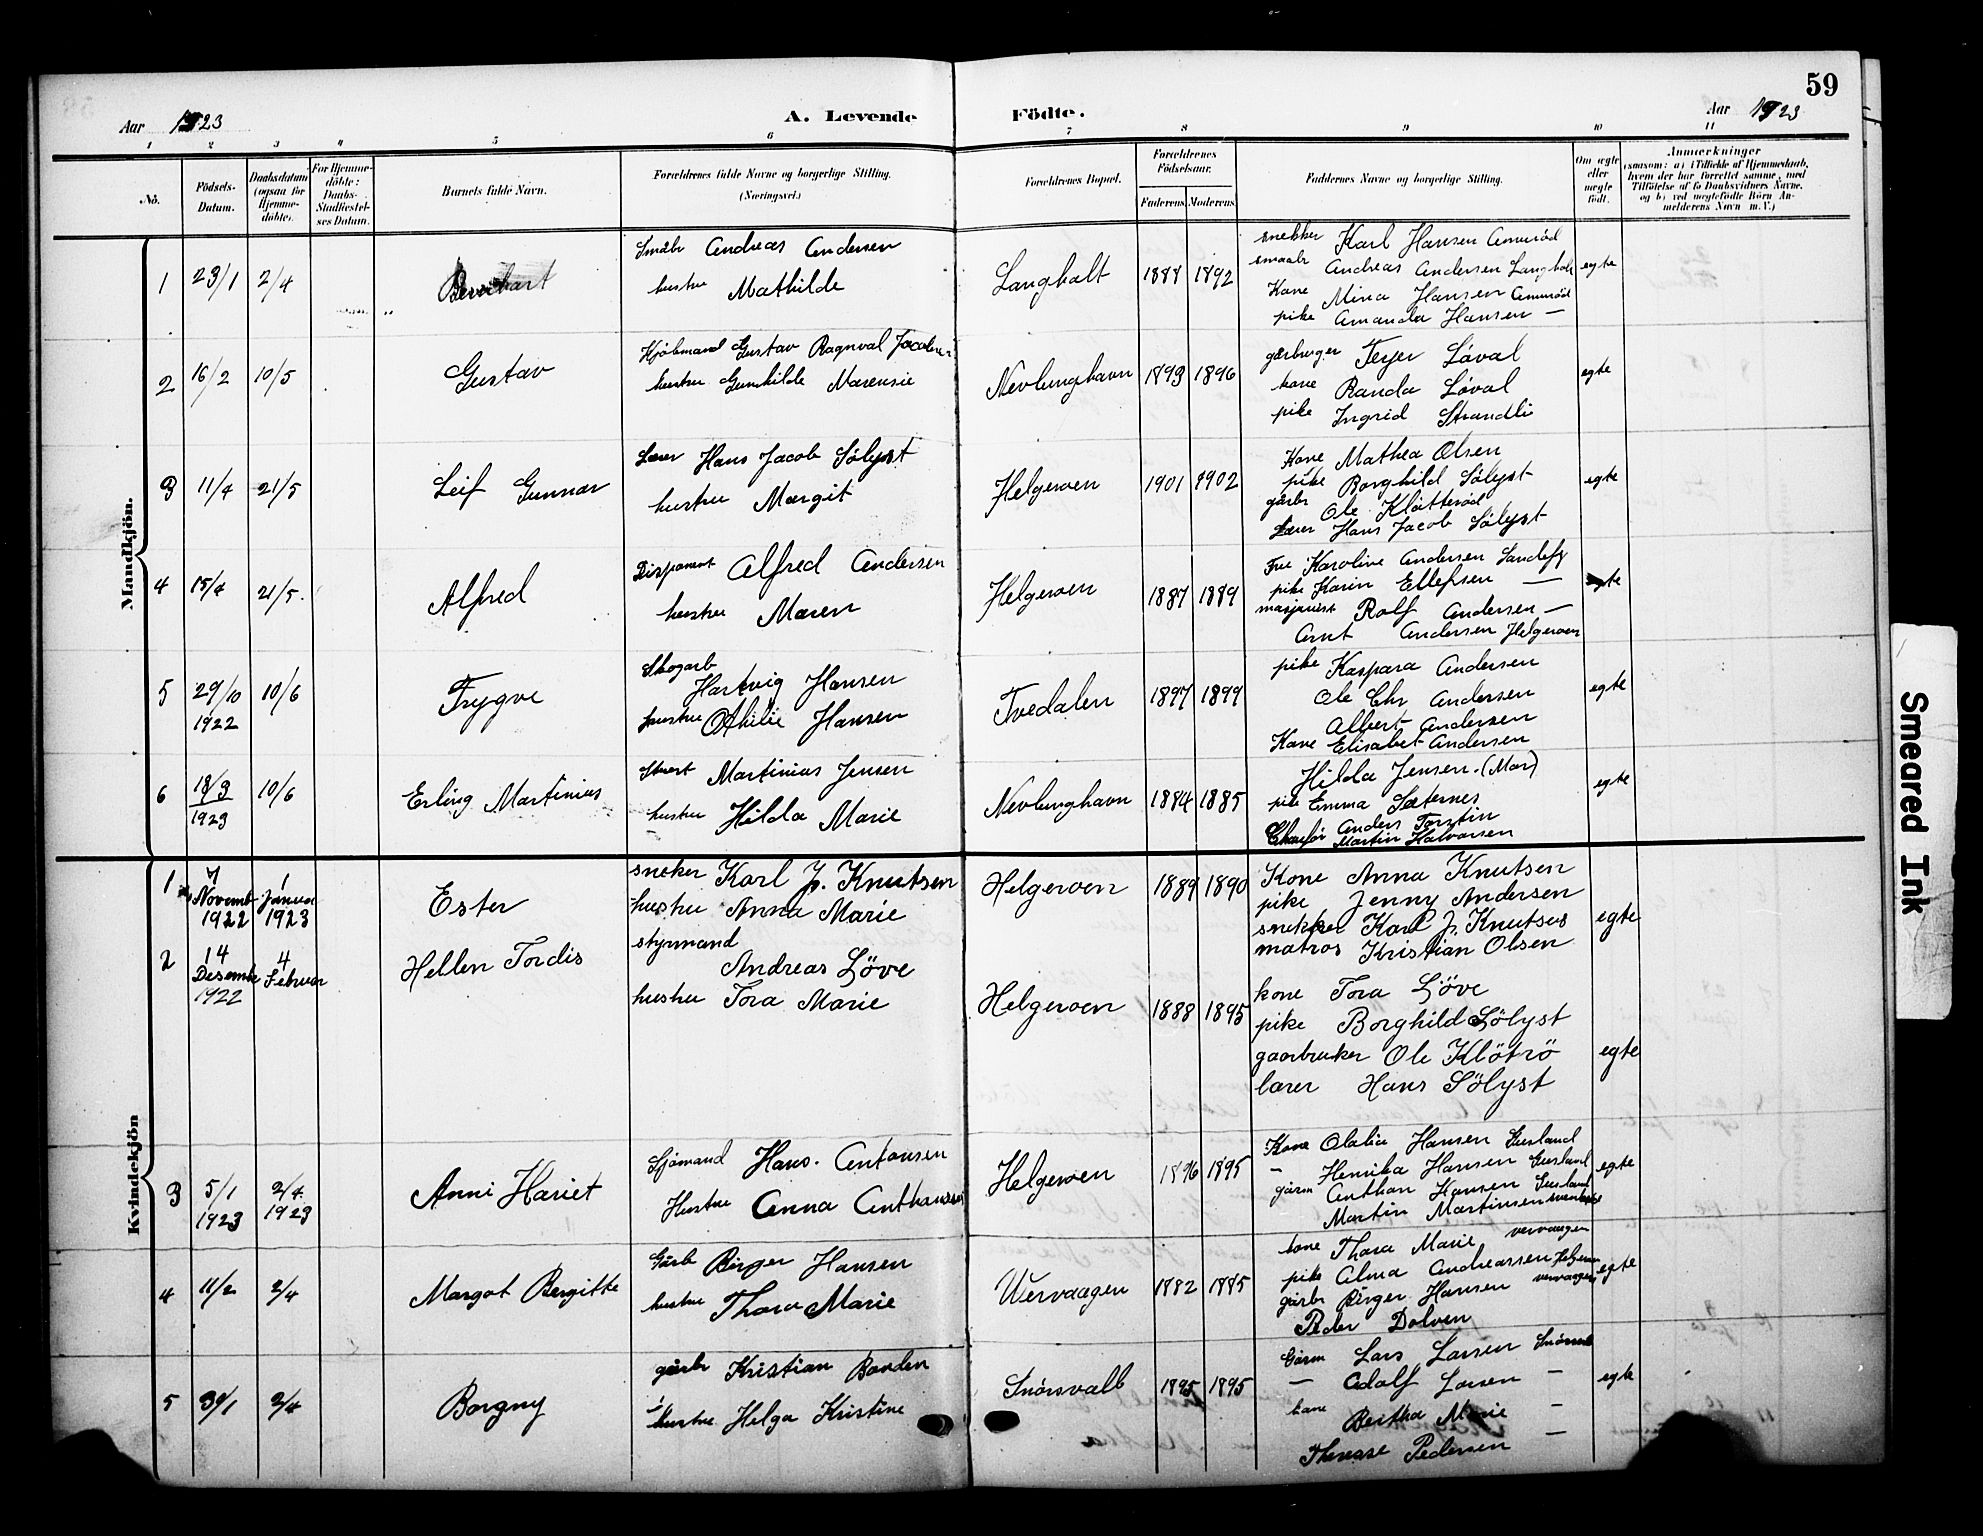 59
Aar 1923
A. Levende
Födte.
Aar 1923
1 2 3 4 5 6 7 8 9 10 11
No.
Födsels-
Datum.
Daabsdatum
(ogsaa for
Hjemme-
döbte).
For Hjemme-
döbte:
Daabs-
Stadfæstel-
ses Datum.
Barnets fulde Navn.
Forældrenes fulde Navne og borgerlige Stilling.
(Næringsvei.)
Forældrenes Bopæl.
Forældrenes
Födselsaar.
Faderens. Moderens.
Faddernes Navne og borgerlige Stilling.
Om ægte
eller
uægte
födt.
Anmærkninger
(saasom: a) i Tilfælde af Hjemmedaab,
hvem der har forrettet samme, med
Tilföielse af to Daabsvidners Navne,
og b) ved uægtefödte Börn An-
melderens Navn m. V.)
Mandkjön.
1 23/1 2/4
Småbr Andreas Andersen
hustru Mathilde
Langholt 1888 1892
snekker Karl Hansen Amunröd
smaabr Andreas Andersen Langholt
Kone Mina Hansen Amunröd
pike Amanda Hansen —
egte
2 16/2 10/5 Gustav
Kjøbmand Gustav Ragnval Jacobsen
hustru Gunhilde Marensie
Nevlunghavn 1893 1896
gårbruger Teyer Løval
kone Randa Løval
pike Ingrid Strandli
egte
3 11/4 21/5 Leif Gunnar
Lærer Hans Jacob Sølyst
hustru Margit
Helgeroen 1901 1902
Kone Mathea Olsen
pike Borghild Sølyst
gårbr Ole Kløtterød
Lærer Hans Jacob Sølyst
egte
4 15/4 21/5. Alfred
Disponent Alfred Andersen
hustru Maren
Helgeroen 1887 1889
Frue Karoline Andersen Sandefj
pike Karin Ellefsen —
maskinist Rolf Andersen —
Arnt Andersen Helgeroen
egte
5 29/10 1922 10/6 Trygve
Skogarb
Hartvig Hansen
hustru Othilie Hansen
Tvedalen 1897 1899
pike Kaspara Andersen
Ole Chr Andersen
Albert Andersen
Kone Elisabet Andersen
egte
6 18/3 1923 10/6 Erling Martinius
Stuert Martinius Jensen
hustru Hilda Marie
Nevlunghavn 1884 1885
Hilda Jensen. (Mor)
pike Emma Sæternes
Anders Torstin
Chaufør Martin Halvorsen
egte
Kvindekjön
1 7 Novemb 1922 1 Januar 1923 Ester
sneker Karl J. Knutsen
hustru Anna Marie
Helgeroen 1889 1890
Kone Anna Knutsen
pike Jenny Andersen
snekker Karl J. Knutsen
matros Kristian Olsen
egte
2 14 Desembe 1922 4 Februar Hellen Tordis
styrmand
Andreas Løve
hustru Tora Marie
Helgeroen 1888 1895
kone Tora Løve
pike Borghild Sølyst
gaarbruker Ole Kløtrø
lærer Hans Sølyst
egte
3 5/1 1923 2/4 1923 Anni Hariet
Sjømand Hans. Antonsen
Hustru Anna Anthonsen
Helgeroen 1896 1895
Kone Olalia Hansen Gusland
— Henrika Hansen Gusland
gårm Anthon Hansen Gusland
Martin Martinsen
egte
4 11/2 2/4 Margot Bergitte
Gårb Birger Hansen
hustru Thora Marie
Wervaagen 1882 1885
kone Thora Marie vervaagen
pike Alma Andreassen Helgeroen
gårbr Birger Hansen vervaagen
Peder Dolven
egte
5 30/1 2/4 Borgny
gårbr Kristian Barden
hustru Helga Kristine
Snørsvall 1895 1895
Gårm Lars Larsen
— Adolf Larsen —
kone Bertha Marie —
Therese Pedersen —
egte
Smeared Ink